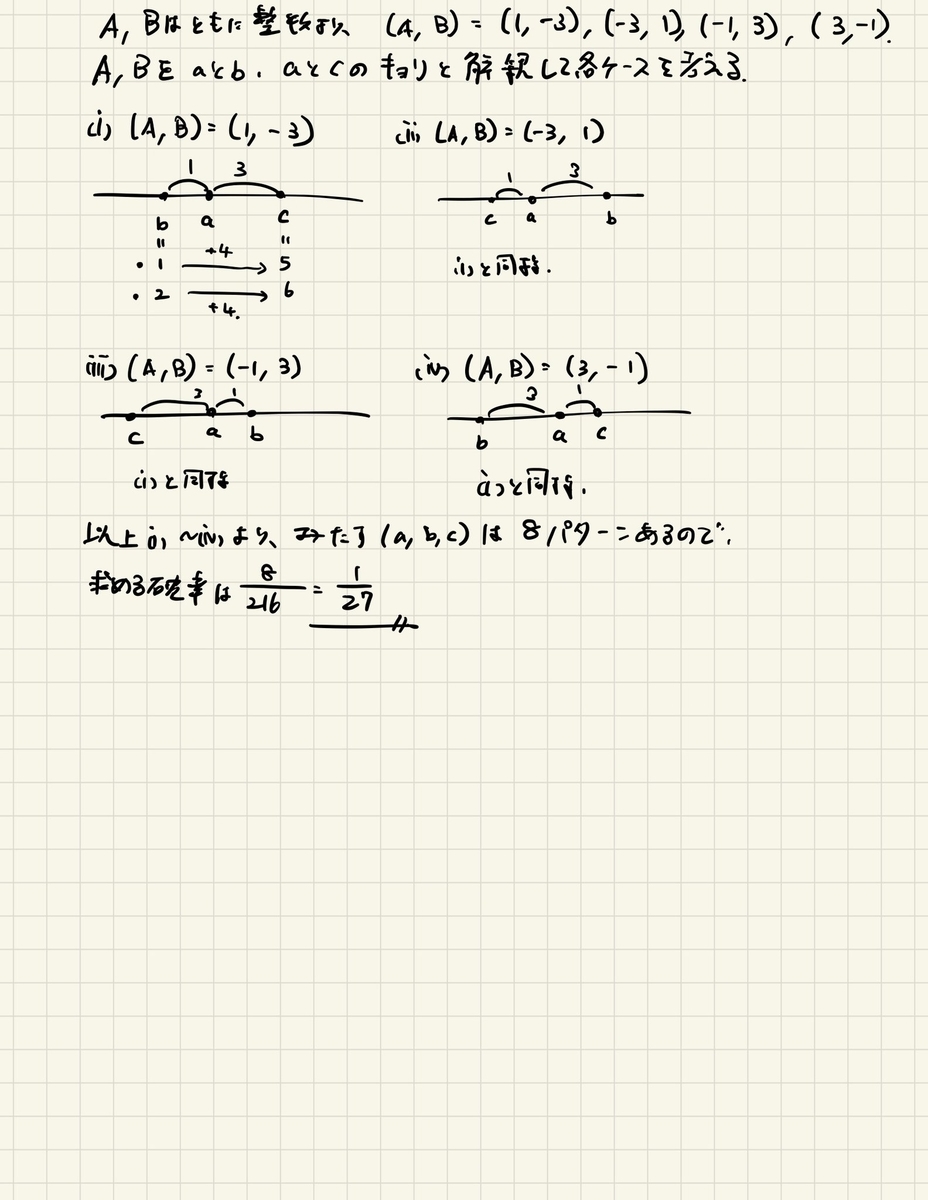 A, Bはともに整数より、 (A, B) = (1, -3), (-3, 1), (-1, 3), (3, -1).
A, Bを aとb, aとcの キョリと 解釈して各ケースを考える.
(i) (A, B) = (1, -3) (ii) (A, B) = (-3, 1)
1 3 1 3
b a c c a b
" "
・ 1 +4 5 (i)と同様.
・ 2 +4. 6
(iii) (A, B) = (-1, 3) (iv) (A, B) = (3, -1)
3 1 3 1
c a b b a c
(i)と同様 (i)と同様.
以上 (i) 〜(iv)より、みたす (a, b, c) は 8パターンあるので,
求める確率は 8/216 = 1/27